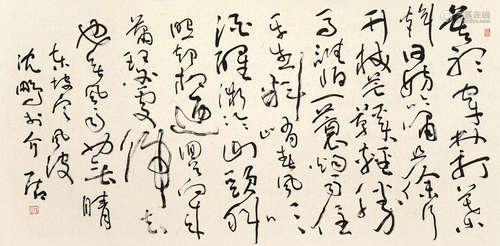 莫聽穿林打葉
聲何妨吟嘯且徐行
竹杖芒鞋輕勝
馬誰怕一蓑煙雨任
平生料峭春風吹
酒醒微冷山頭斜
照却相迎回首向來
蕭瑟處歸去
也無風雨也無晴
東坡定風波
沈鵬書介居